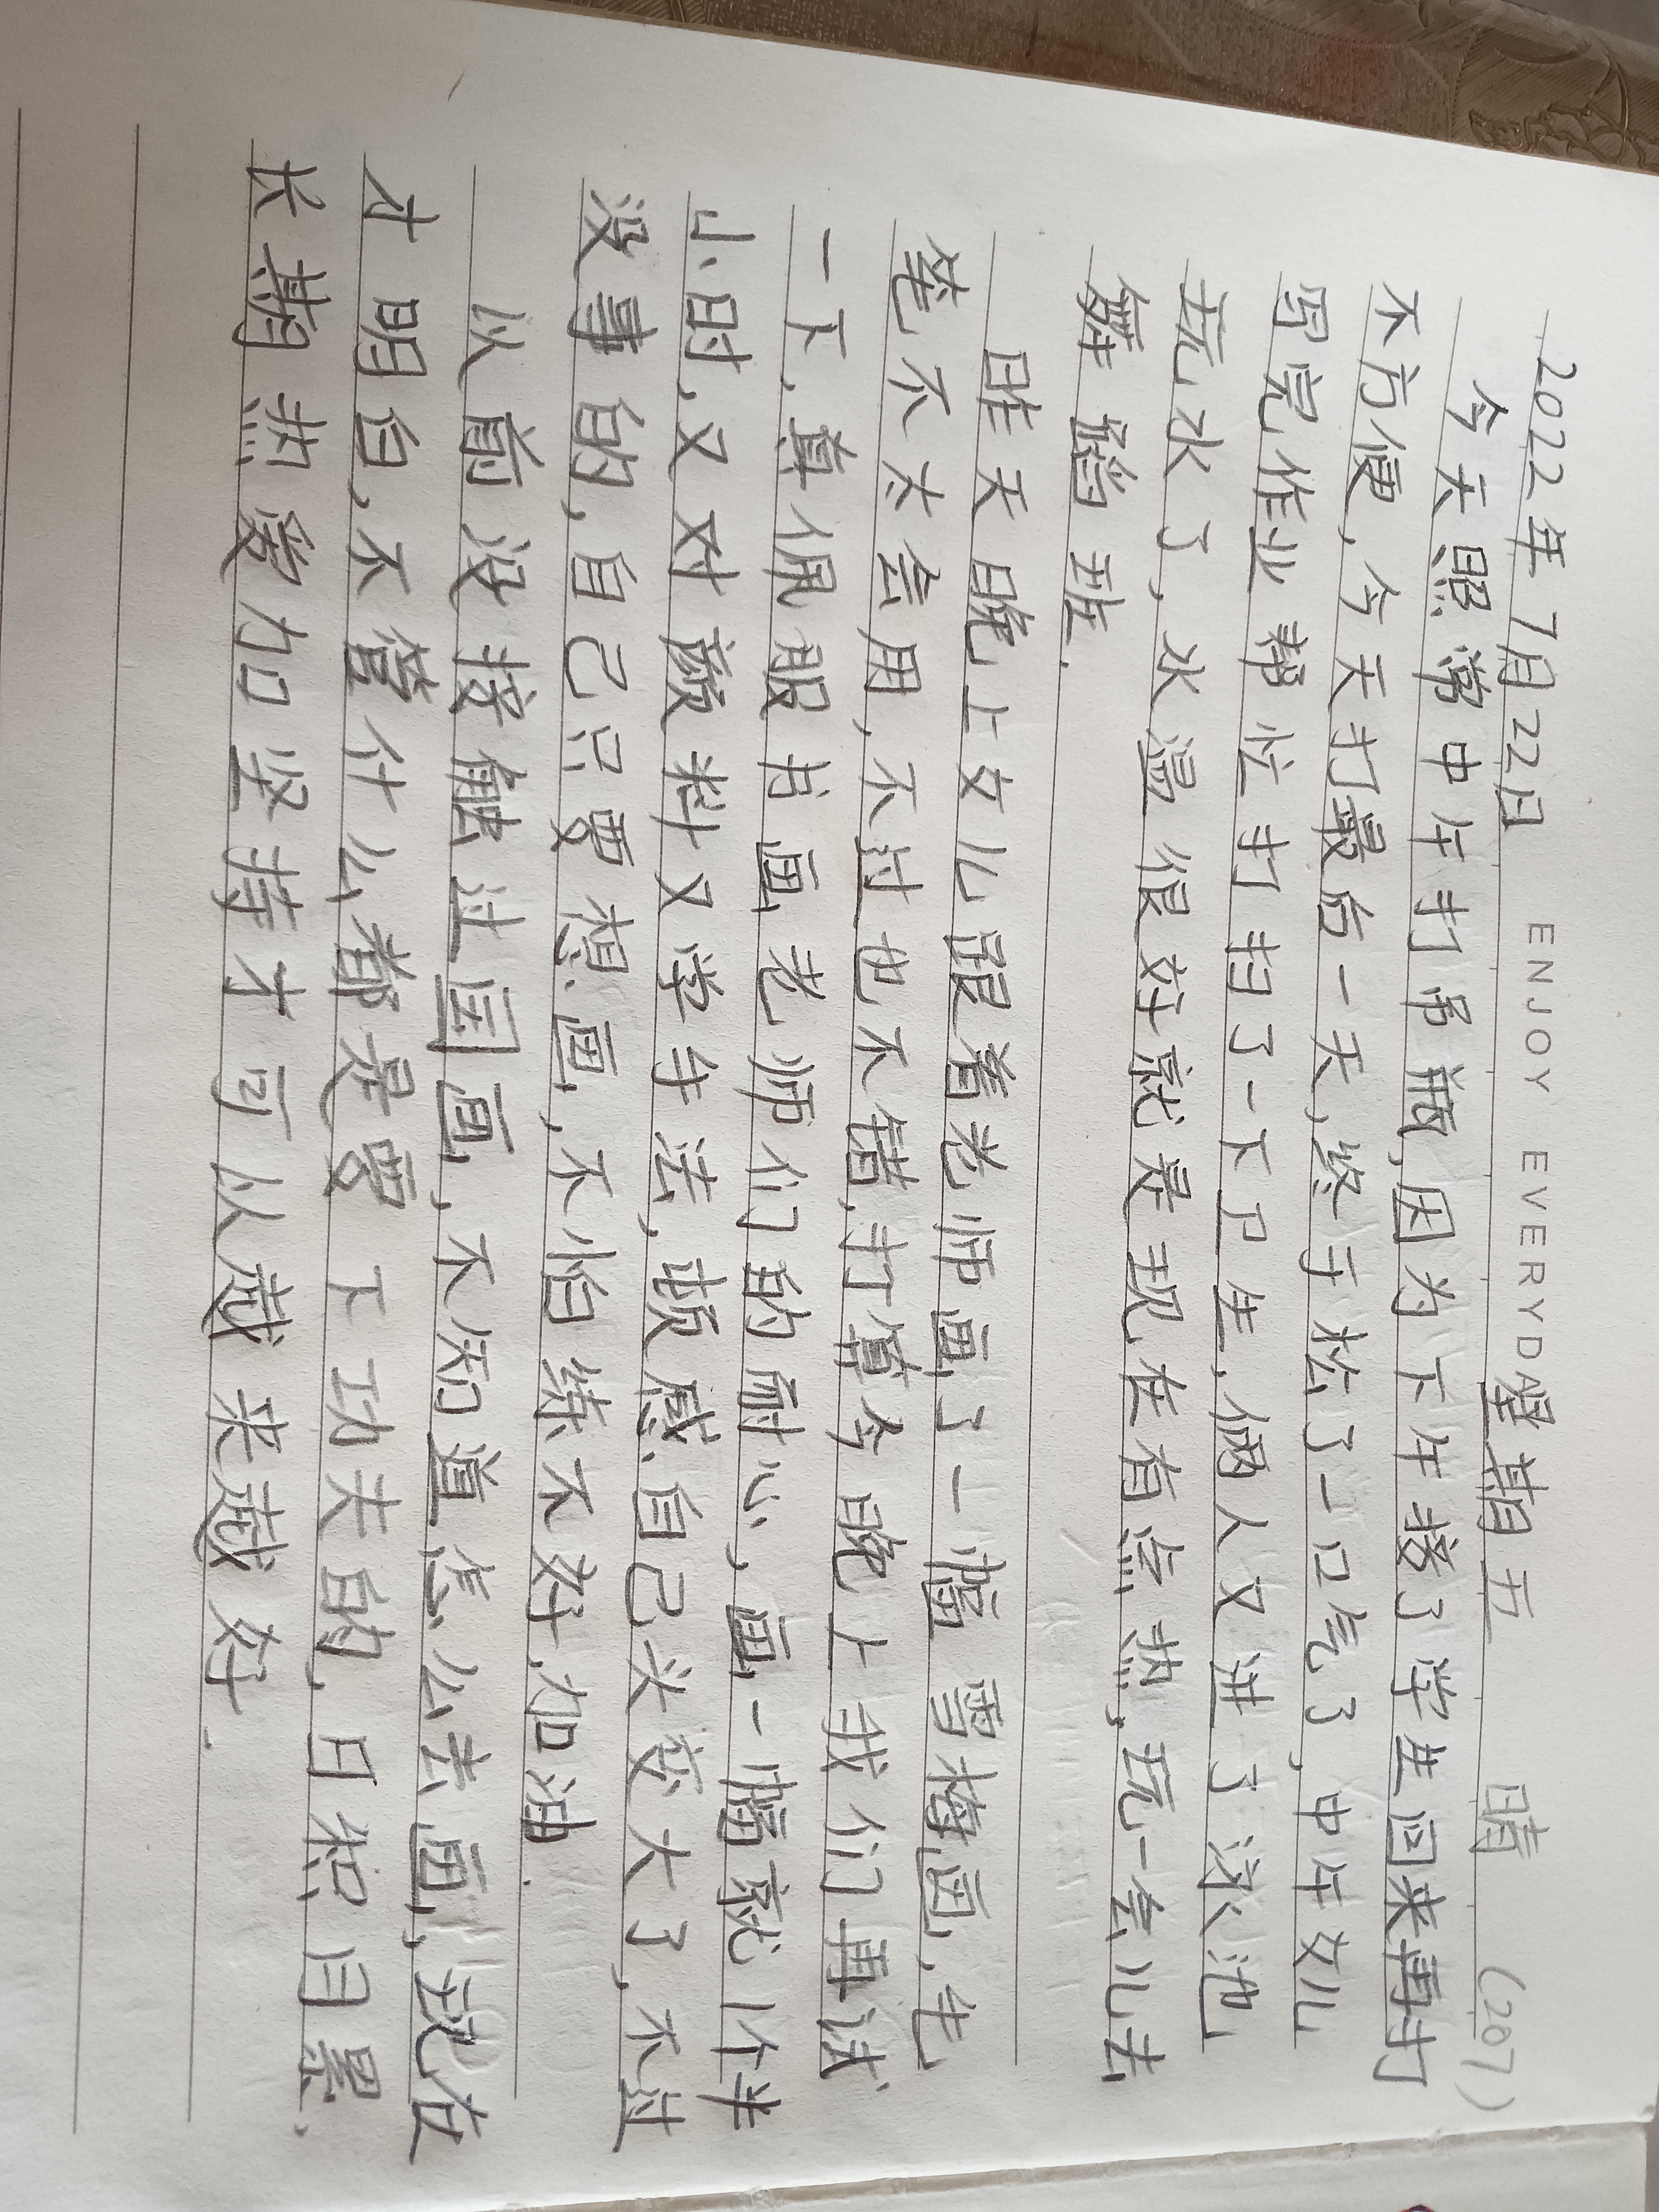 ENJOY EVERYDAY
2022年7月22日 星期五 晴 (207)
今天照常中午打吊瓶,因为下午接了学生回来再打
不方便,今天打最后一天,终于松了一口气了,中午女儿
写完作业帮忙打扫了一下卫生,俩人又进了泳池
玩水了,水温很好就是现在有点热,玩一会儿去
舞蹈班.
昨天晚上女儿跟着老师画了一幅雪梅图,毛
笔不太会用,不过也不错,打算今晚上我们再试
一下.真佩服书画老师们的耐心,画一幅就1个半
小时,又对颜料又学手法,顿感自己头变大了,不过
没事的,自己只要想画,不怕练不好.加油.
以前没接触过国画,不知道怎么去画,现在
才明白,不管什么都是要下功夫的,日积月累.
长期热爱加坚持才可以越来越好.